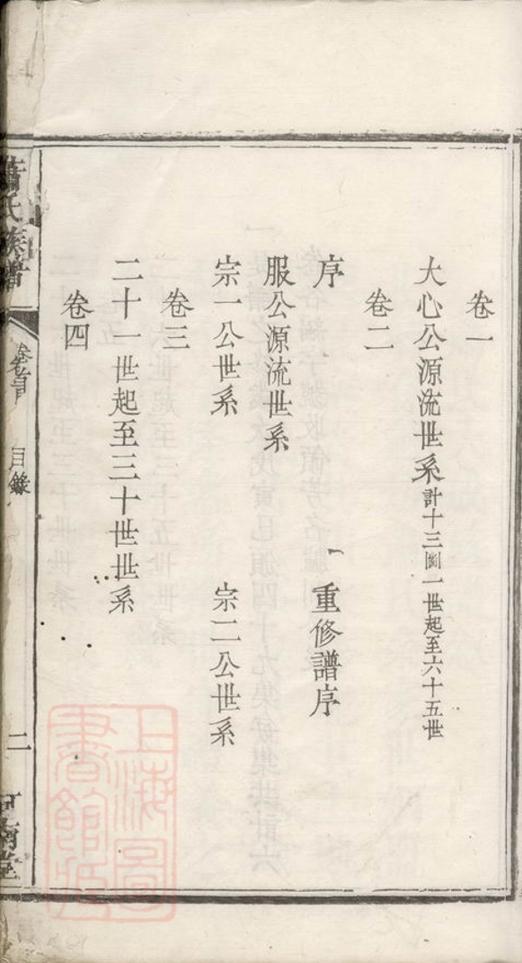 卷一
大心公源流世系計十三圖一世起至六十五世
卷二
序 重修譜序
服公源流世系
宗一公世系 宗二公世系
卷三
二十一世起至三十世世系
卷四
蕭氏族譜 卷首 目錄 二 河南堂
上海圖書館藏